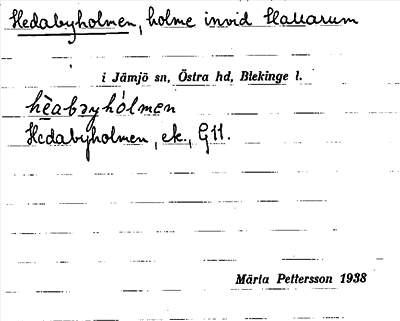 Hedabyholmen, holme invid Hallarum
i Jämjö sn, Östra hd, Blekinge l.
Hedabyholmen, ek., G11.
Märta Pettersson 1938